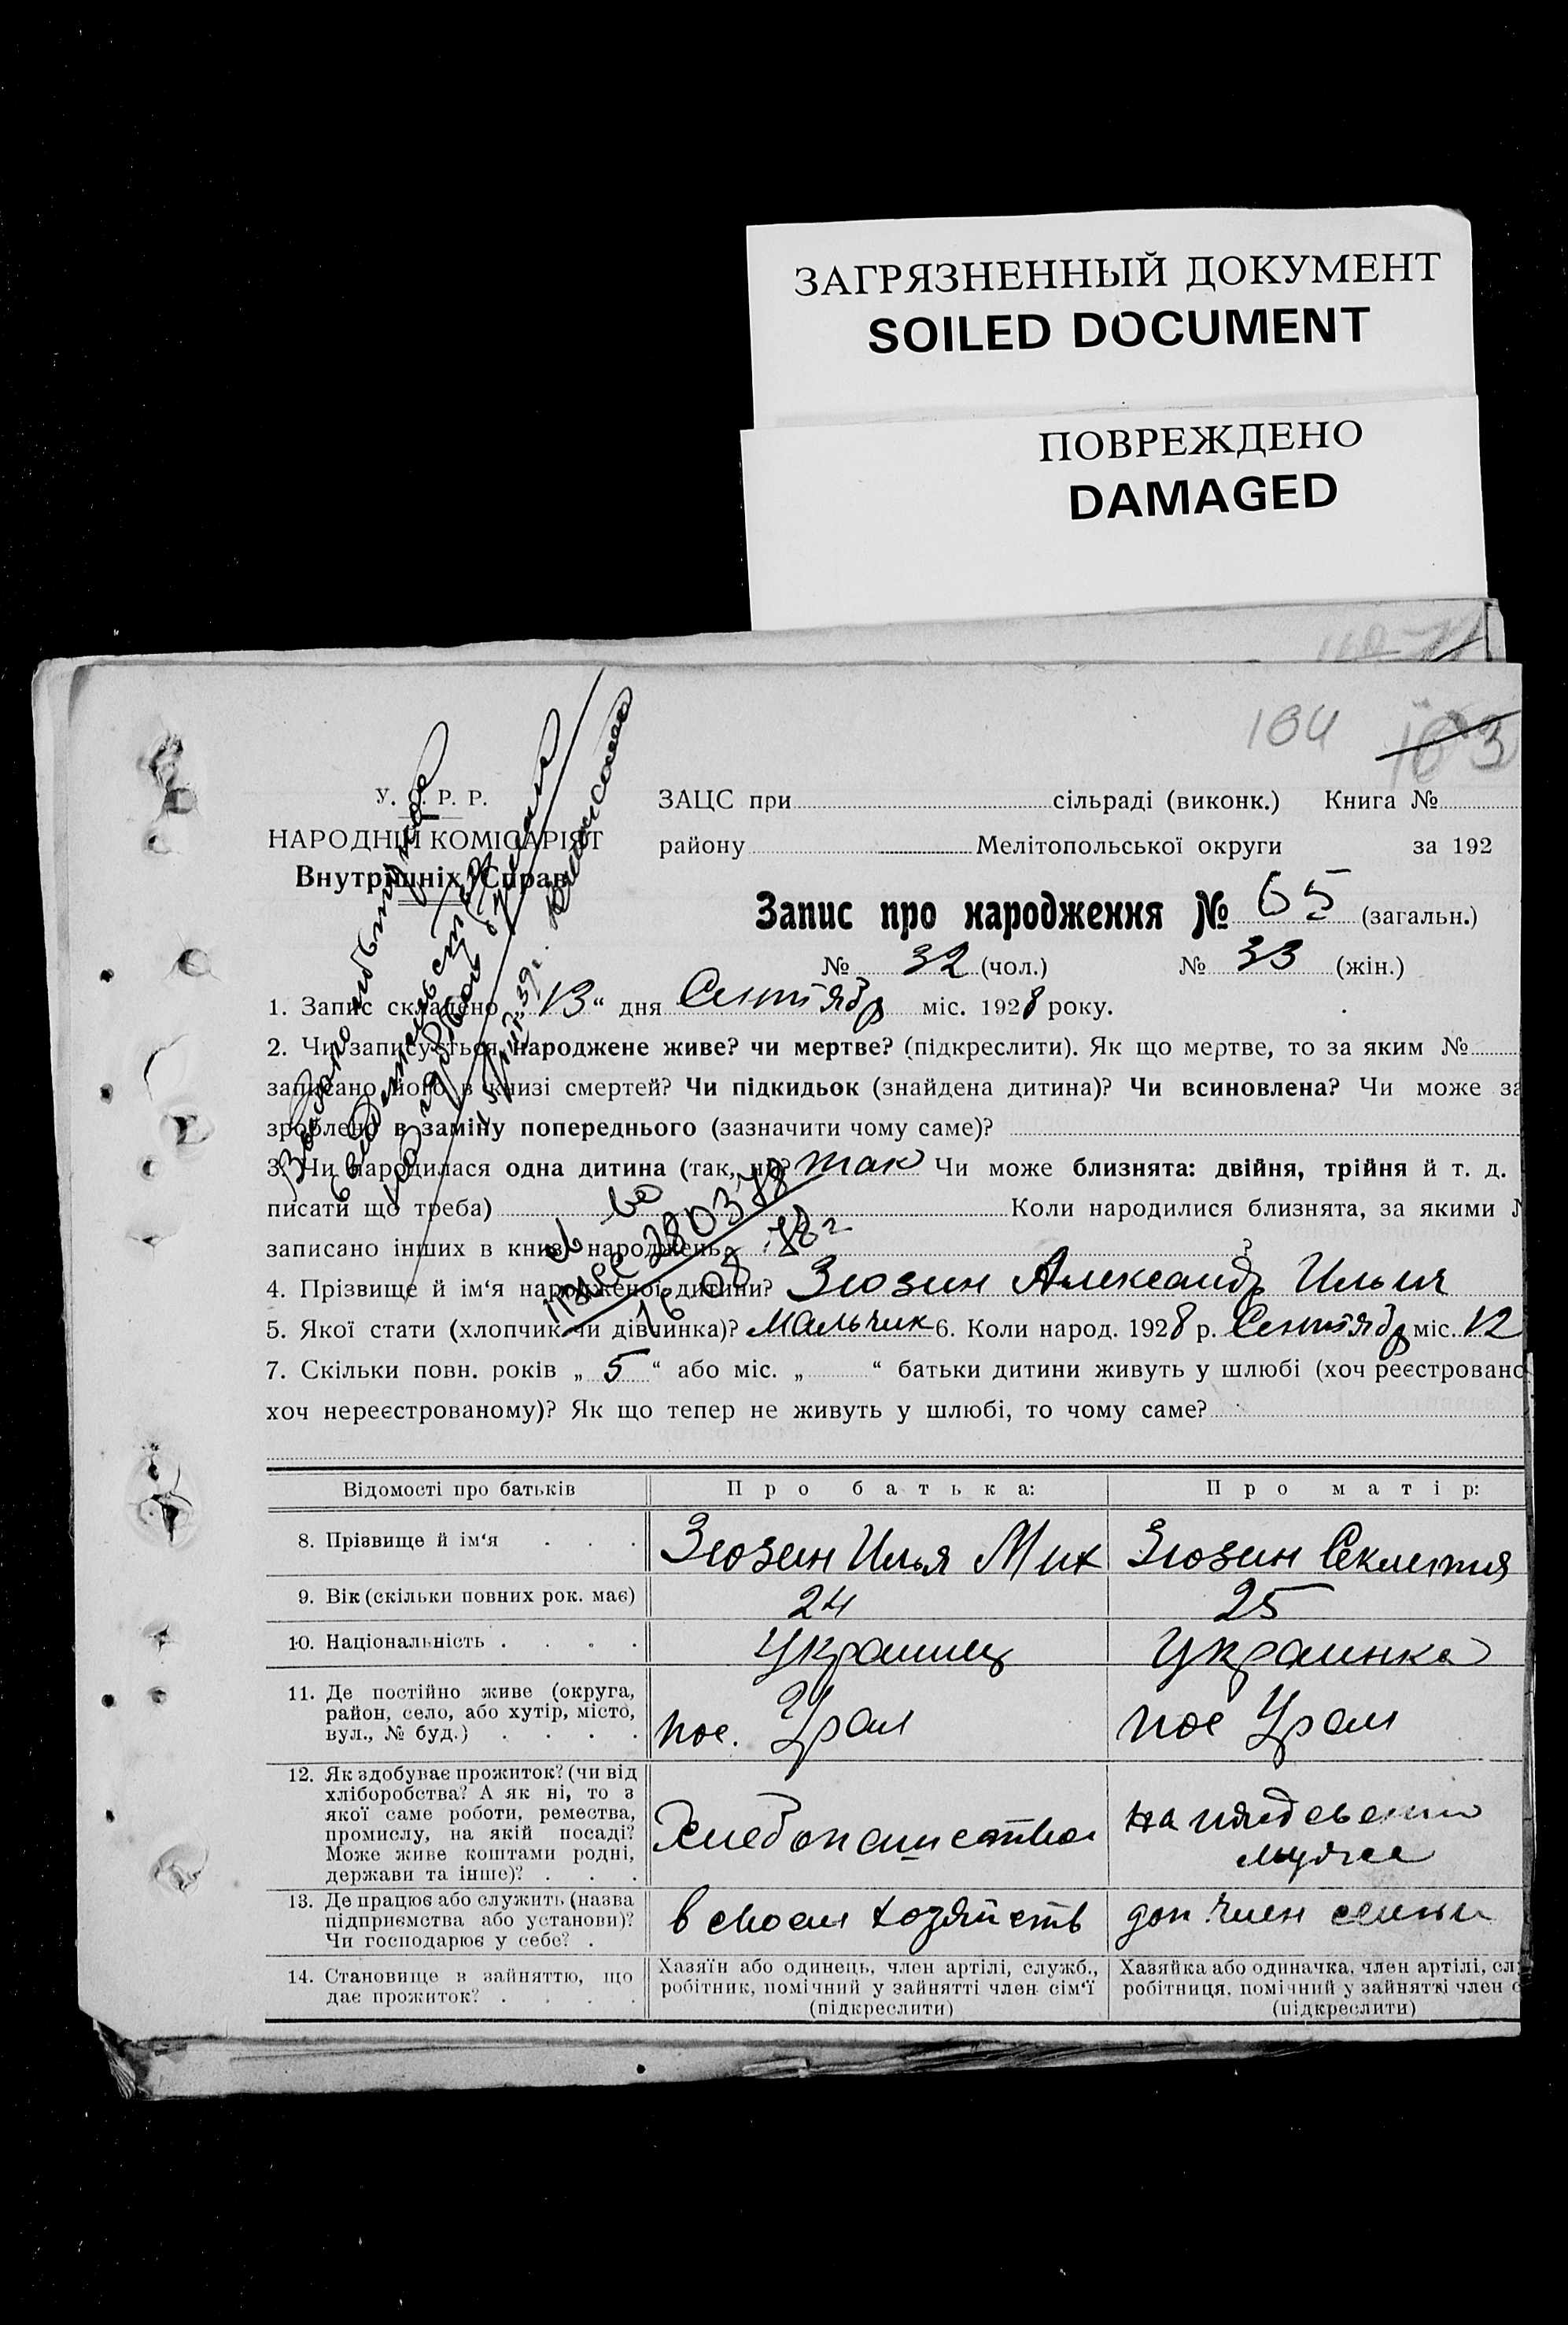 ЗАГРЯЗНЕННЫЙ ДОКУМЕНТ
SOILED DOCUMENT
ПОВРЕЖДЕНО
DAMAGED
104 103
У. С. Р. Р.
НАРОДНІЙ КОМІСАРІЯТ
Внутрішніх Справ
ЗАЦС при сільраді (виконк.) Книга №
району Мелітопольської округи за 192
Запис про народження № 65 (загальн.)
№ 32 (чол.) № 33 (жін.)
Выдано повторное
свидетельство
1. Запис складено „13“ дня Сентябр міс. 1928 року.
2. Чи записується народжене живе? чи мертве? (підкреслити). Як що мертве, то за яким №
записано його в книзі смертей? Чи підкидьок (знайдена дитина)? Чи всиновлена? Чи може за
зроблено в заміну попереднього (зазначити чому саме)?
3. Чи народилася одна дитина (так, ні)? так Чи може близнята: двійня, трійня й т. д.
писати що треба) Коли народилися близнята, за якими №
записано інших в книзі народжень ?
280378
16 08 78г
4. Прізвище й ім‘я народженої дитини? Зюзин Александр Ильич
5. Якої стати (хлопчик чи дівчинка)? Мальчик 6. Коли народ. 1928 р. Сентябр міс. 12
7. Скільки повн. років „ 5 “ або міс. „ “ батьки дитини живуть у шлюбі (хоч реєстровано
хоч нереєстрованому)? Як що тепер не живуть у шлюбі, то чому саме?
Відомості про батьків Про батька: Про матір:
8. Прізвище й ім‘я Зюзин Илья Мих Зюзин Секлетия
9. Вік (скільки повних рок. має) 24 25
10. Національність Украинец Украинка
11. Де постійно живе (округа,
район, село, або хутір, місто,
вул., № буд.) пос. Урал пос Урал
12. Як здобуває прожиток? (чи від
хліборобства? А як ні, то з
якої саме роботи, ремества,
промислу, на якій посаді?
Може живе коштами родні,
держави та інше)? Хлебопашество на иждевении
мужа
13. Де працює або служить (назва
підприємства або установи)?
Чи господарює у себе? в своем хозяйств доп. член семьи
14. Становище в зайняттю, що
дає прожиток?
Хазяїн або одинець, член артілі, служб.,
робітник, помічний у зайнятті член сім‘ї
(підкреслити)
Хазяйка або одиначка, член артілі, сл
робітниця, помічний у зайнятті член с
(підкреслити)